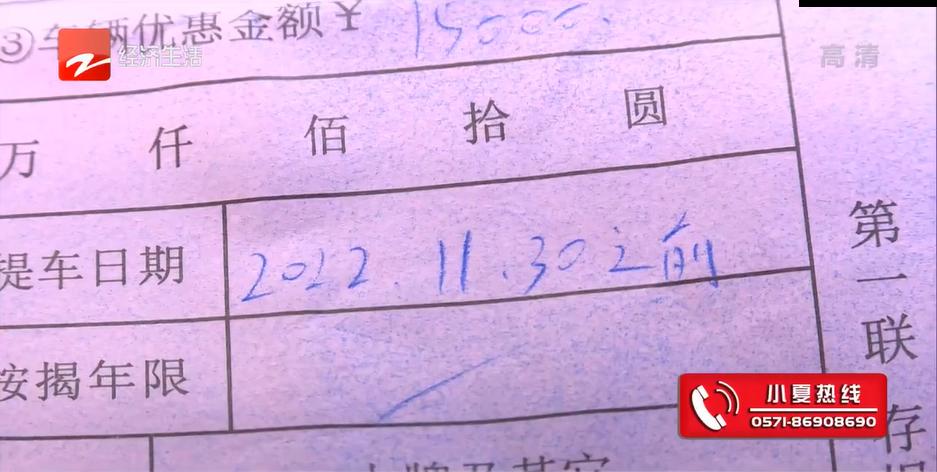 ③车辆优惠金额￥ 15000.
经济生活
高清
万 仟 佰 拾 圆
提车日期 2022.11.30之前
按揭年限
第一联 存
小夏热线
0571-86908690